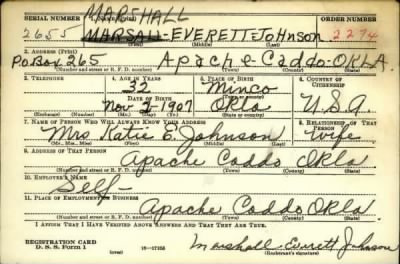 SERIAL NUMBER 1. NAME (Print) ORDER NUMBER
MARSHALL
2655 MARSALL-EVERETT Johnson 2274
(First) (Middle) (Last)
2. ADDRESS (Print)
P.O Box 265 Apache-Caddo-OKLA.
(Number and street or R. F. D. number) (Town) (County) (State)
3. TELEPHONE 4. AGE IN YEARS 5. PLACE OF BIRTH 6. COUNTRY OF CITIZENSHIP
32 Minco
DATE OF BIRTH (Town or county)
Nov 2 1907 Okla U.S.A.
(Exchange) (Number) (Mo.) (Day) (Yr.) (State or country)
7. NAME OF PERSON WHO WILL ALWAYS KNOW YOUR ADDRESS 8. RELATIONSHIP OF THAT PERSON
Mrs Katie E. Johnson Wife
(Mr., Mrs., Miss) (First) (Middle) (Last)
9. ADDRESS OF THAT PERSON
Apache Caddo Okla
(Number and street or R. F. D. number) (Town) (County) (State)
10. EMPLOYER'S NAME
Self-
11. PLACE OF EMPLOYMENT OR BUSINESS
Apache Caddo Okla.
(Number and street or R. F. D. number) (Town) (County) (State)
I AFFIRM THAT I HAVE VERIFIED ABOVE ANSWERS AND THAT THEY ARE TRUE.
REGISTRATION CARD
D. S. S. Form 1 16—17105 Marshall Everett Johnson